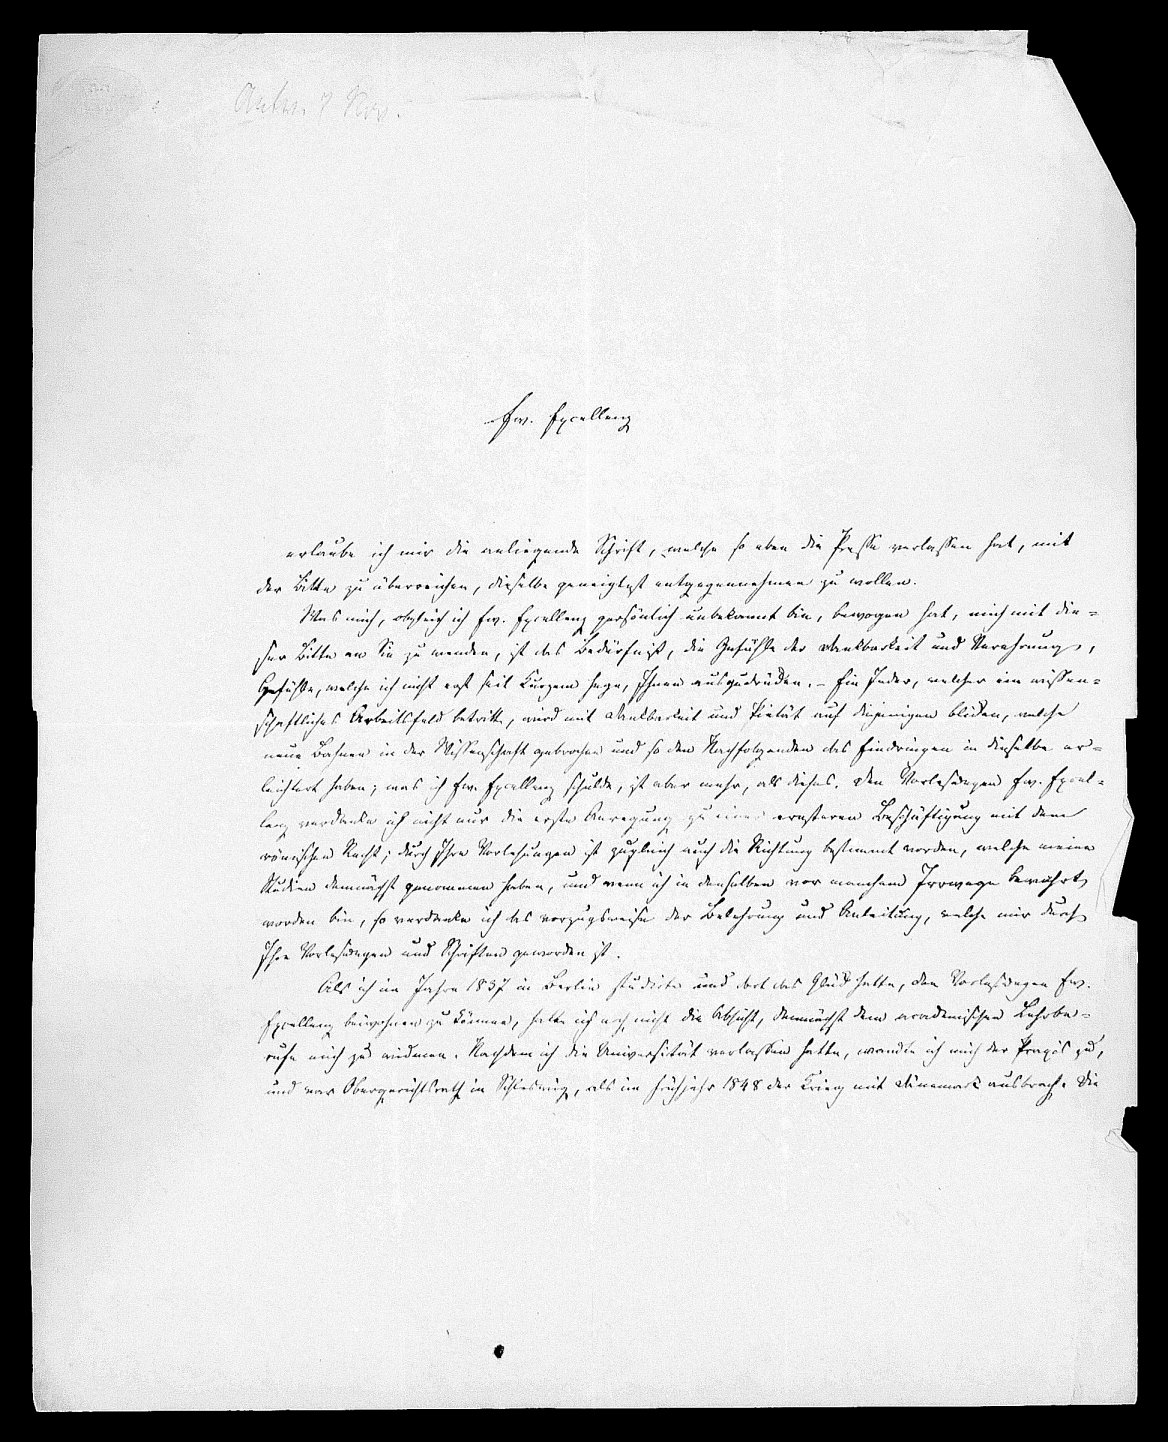 Antw. 7 Nov.
Ew. Excellenz
erlaube ich mir die anliegende Schrift, welche so eben die Presse verlassen hat, mit
der Bitte zu überreichen, dieselbe geneigtest entgegennehmen zu wollen.
Was mich, obgleich ich Ew. Excellenz persönlich unbekannt bin, bewogen hat, mich mit die-
ser Bitte an Sie zu wenden, ist das Bedürfniß, die Gefühle der Dankbarkeit und Verehrung,
Gefühle, welche ich nicht erst seit Kurzem hege, Ihnen auszudrücken. – Ein Jeder, welcher ein wissen-
schaftliches Arbeitsfeld betritt, wird mit Dankbarkeit und Pietät auf diejenigen blicken, welche
neue Bahnen in der Wissenschaft gebrochen und so den Nachfolgenden das Eindringen in dieselbe er-
leichtert haben; was ich Ew. Excellenz schulde, ist aber mehr, als dieses. Den Vorlesungen Ew. Excel-
lenz verdanke ich nicht nur die erste Anregung zu einer ernsteren Beschäftigung mit dem
römischen Recht; durch Ihre Vorlesungen ist zugleich auch die Richtung bestimmt worden, welche meine
Studien demnächst genommen haben, und wenn ich in denselben vor manchem Irrwege bewahrt
worden bin, so verdanke ich das vorzugsweise der Belehrung und Anleitung, welche mir durch
Ihre Vorlesungen und Schriften geworden ist.
Als ich im Jahre 1837 in Berlin studirte und dort das Glück hatte, den Vorlesungen Ew.
Excellenz beiwohnen zu können, hatte ich noch nicht die Absicht, demnächst dem academischen Lehrbe-
rufe mich zu widmen. Nachdem ich die Universität verlassen hatte, wandte ich mich der Praxis zu,
und war Obergerichtsrath in Schleswig, als im Frühjahr 1848 der Krieg mit Dänemark ausbrach. Die